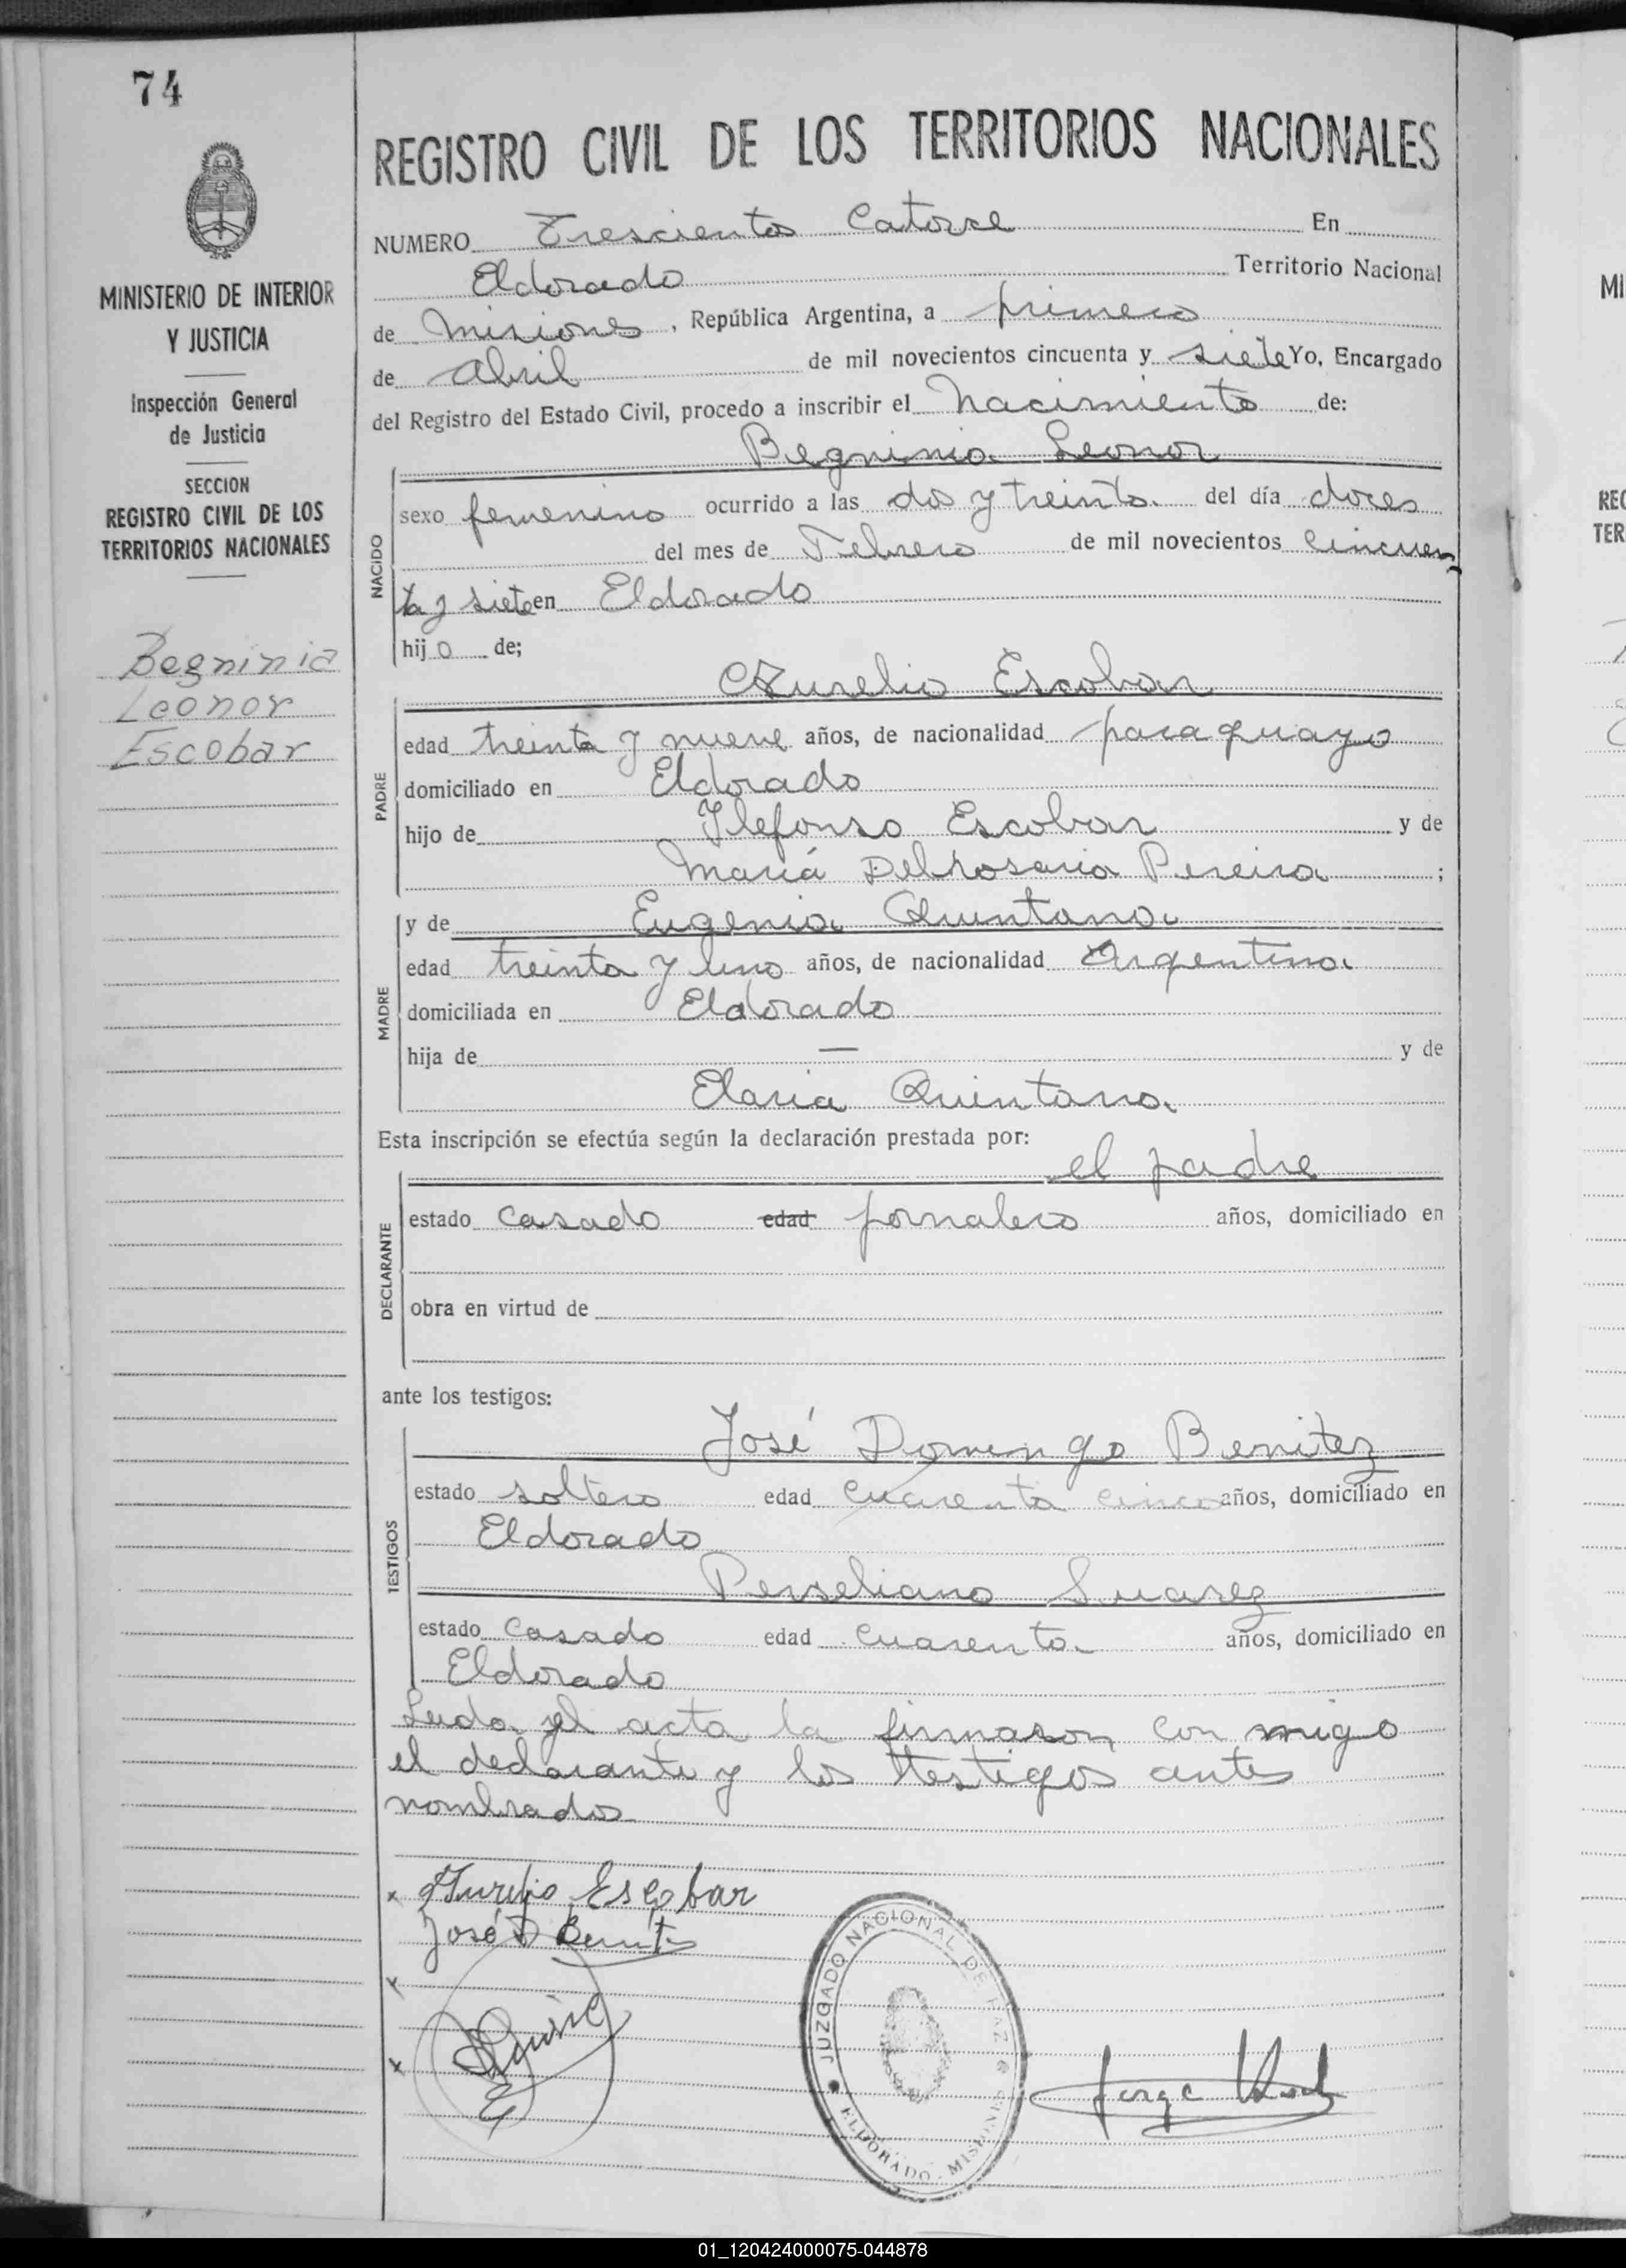 74
MINISTERIO DE INTERIOR
Y JUSTICIA
Inspección General
de Justicia
SECCION
REGISTRO CIVIL DE LOS
TERRITORIOS NACIONALES
Begninia
Leonor
Escobar
REGISTRO CIVIL DE LOS TERRITORIOS NACIONALES
NUMERO Trescientos Catorce En
Eldorado Territorio Nacional
de Misiones, República Argentina, a primero
de Abril de mil novecientos cincuenta y siete Yo, Encargado
del Registro del Estado Civil, procedo a inscribir el Nacimiento de:
Begninia Leonor
NACIDO
sexo femenino ocurrido a las dos y treinta del día doces
del mes de Febrero de mil novecientos Cincuen
ta y siete en Eldorado
hij o de;
Aurelio Escobar
PADRE
edad treinta y nueve años, de nacionalidad paraguayo
domiciliado en Eldorado
hijo de Ilefonso Escobar y de
María Delrosario Pereira ;
y de Eugenia Quintana
MADRE
edad treinta y uno años, de nacionalidad Argentina
domiciliada en Eldorado
hija de — y de
Elaria Quintana
Esta inscripción se efectúa según la declaración prestada por:
el padre
DECLARANTE
estado Casado edad jornalero años, domiciliado en
obra en virtud de
ante los testigos:
José Domingo Benitez
TESTIGOS
estado soltero edad Cuarenta cinco años, domiciliado en
Eldorado
Perseliano Suarez
estado Casado edad Cuarenta años, domiciliado en
Eldorado
Leida el acta la firmaron con migo
el declarante y los testigos antes
nombrados
x Aurelio Escobar
José D Benitz
x
x
JUZGADO NACIONAL DE PAZ
ELDORADO - MISIONES
Jorge
01_120424000075-044878